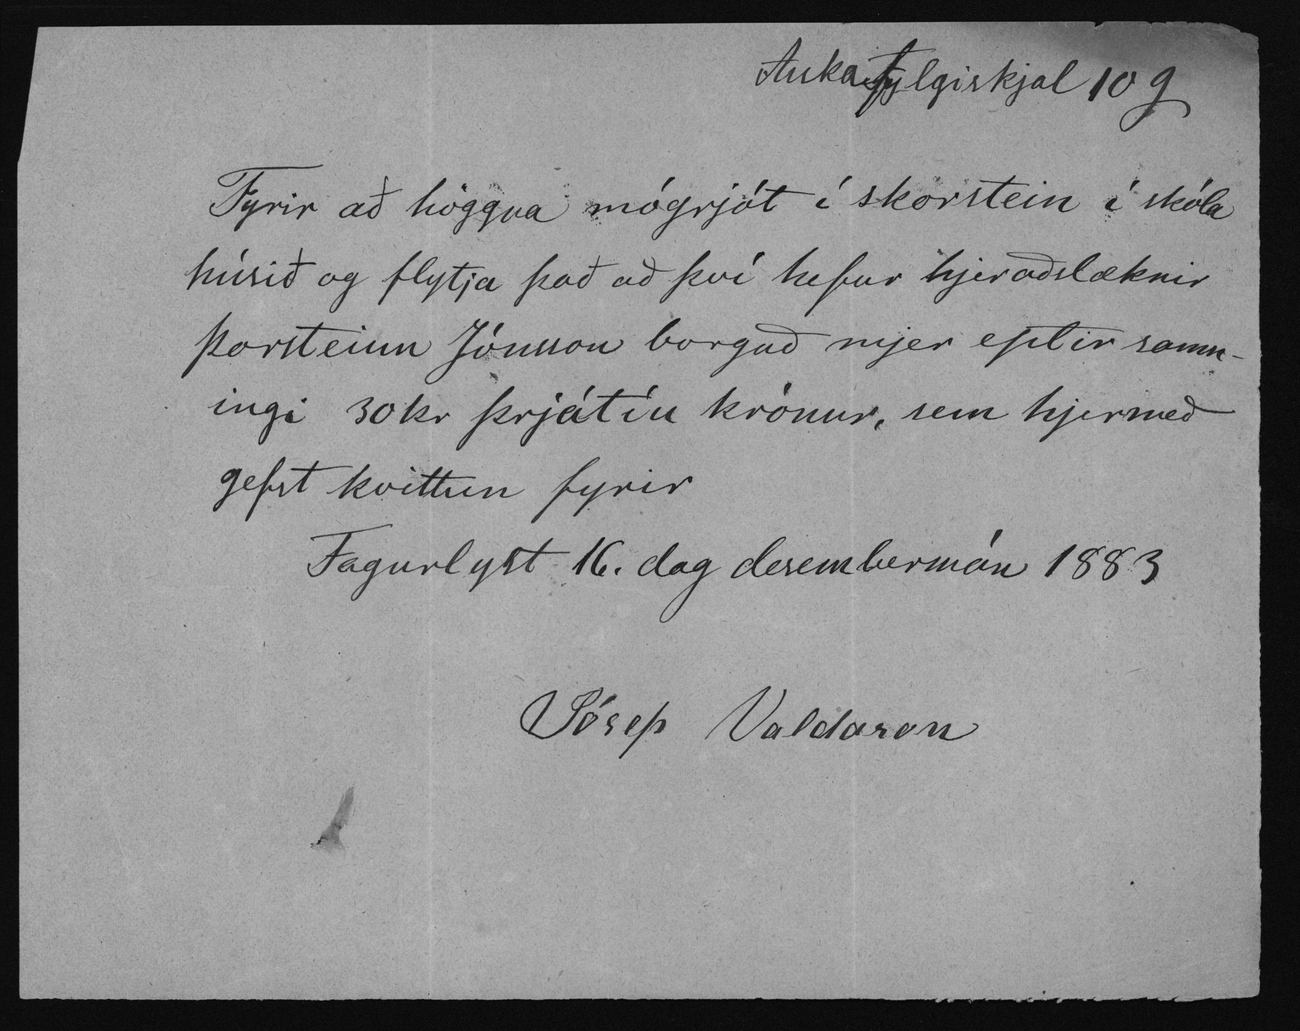 Aukafylgiskjal 10 g
Fyrir að höggva mógrjót í skorstein í skóla
húsið og flytja það að því hefur hjeraðslæknir
Þorsteinn Jónsson borgað mjer eptir samn-
ingi 30 kr þrjátíu krónur, sem hjermeð
gefst kvittun fyrir
Fagurlyst 16. dag desembermán 1883
Jósep Valdason